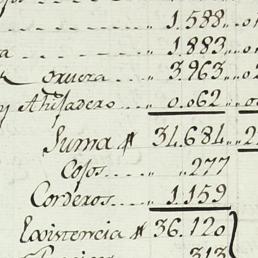 1.588
1.883
3.963
y Ahijadero.. 0.062
Suma # 34.684
Cojos.... 277
Corderos.... 1.159
Existencia # 36.120
313